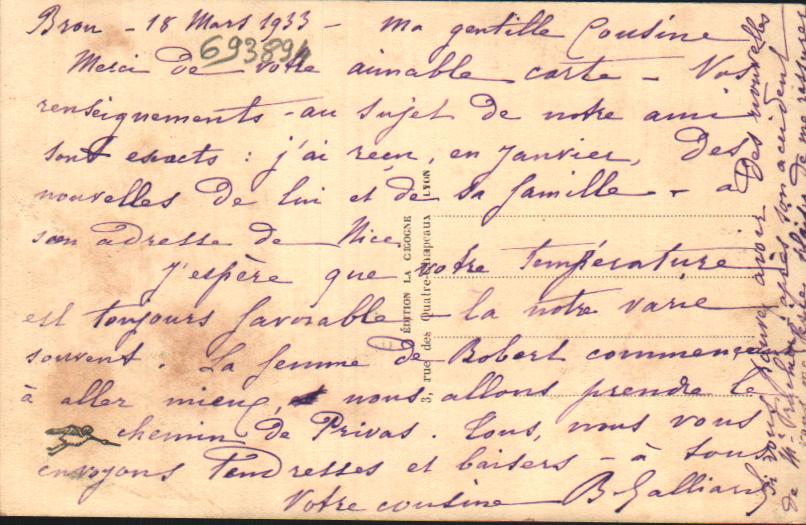 Bron - 18 Mars 1933 - Ma gentille Cousine
69389
Merci de votre aimable carte - Vos
renseignements - au sujet de notre ami
sont exacts : j'ai reçu, en Janvier, des
nouvelles de lui et de sa famille - a
son adresse de Nice
J'espère que votre température
est toujours favorable - la notre varie
souvent. La femme de Robert commence
à aller mieux, nous allons prendre le
chemin de Privas. Tous, nous vous
envoyons tendresses et baisers - à tous
Votre cousine B. Galliard
ÉDITION LA CIGOGNE
3, rue des Quatre-Chapeaux LYON
Si vous pouvez avoir des nouvelles
de Mr après son accident